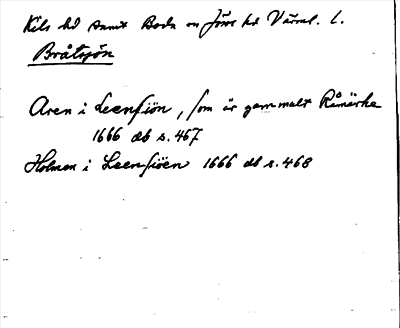 Kils hd samt Boda sn Jösse hd Värml. L.
Bråtsjön
Aren i Leensiön, som är gammalt Råmärke
1666 db s. 467
Holmen i Leensiöen 1666 db s. 468